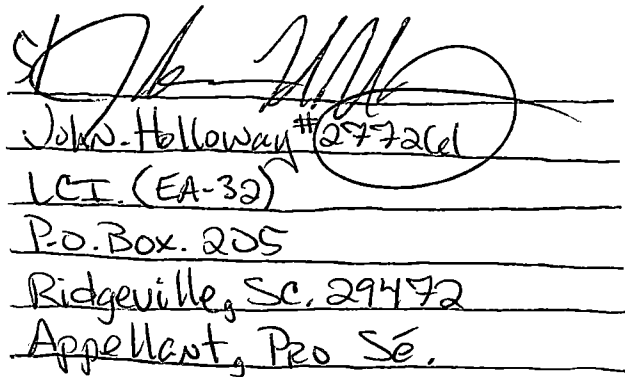 John. Holloway #277261
LCI. (EA-32)
P.O. Box. 205
Ridgeville, SC. 29472
Appellant, Pro Sé.